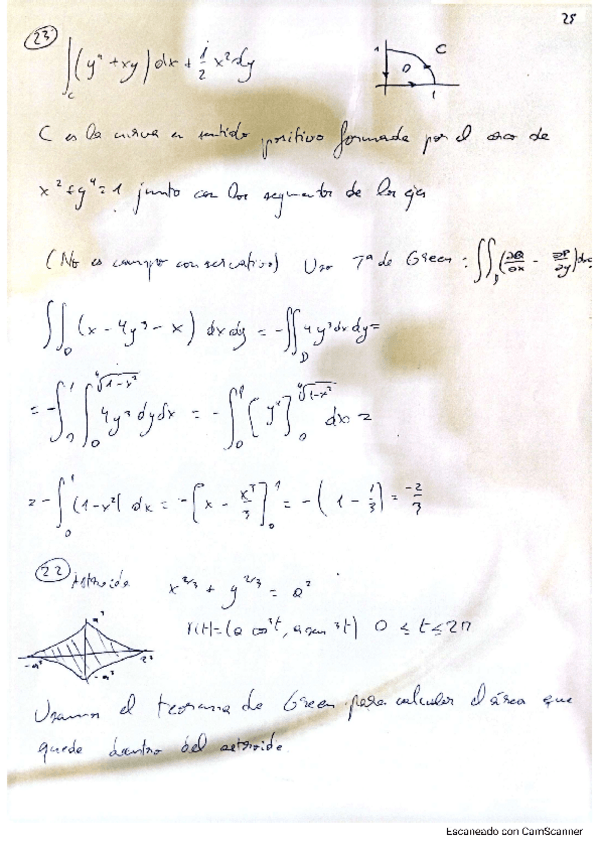 25
23
∫_C (y⁴ + xy) dx + 1/2 x² dy
1 C D 1
C es la curva en sentido positivo formada por el arco de
x² + y⁴ = 1 junto con los segmentos de los ejes
(No es campo conservativo) Uso Tª de Green : ∬_D (∂Q/∂x - ∂P/∂y) dx
∬_D (x - 4y³ - x) dx dy = - ∬_D 4y³ dx dy =
= - ∫₀¹ ∫₀^{⁴√(1-x²)} 4y³ dy dx = - ∫₀¹ [y⁴]₀^{⁴√(1-x²)} dx =
= - ∫₀¹ (1-x²) dx = - [x - x³/3]₀¹ = - (1 - 1/3) = -2/3
22 Astroide x^{2/3} + y^{2/3} = a²
r(t) = (a cos³t, a sen³t) 0 ≤ t ≤ 2π
Usamos el teorema de Green para calcular el área que
quede dentro del astroide.
Escaneado con CamScanner